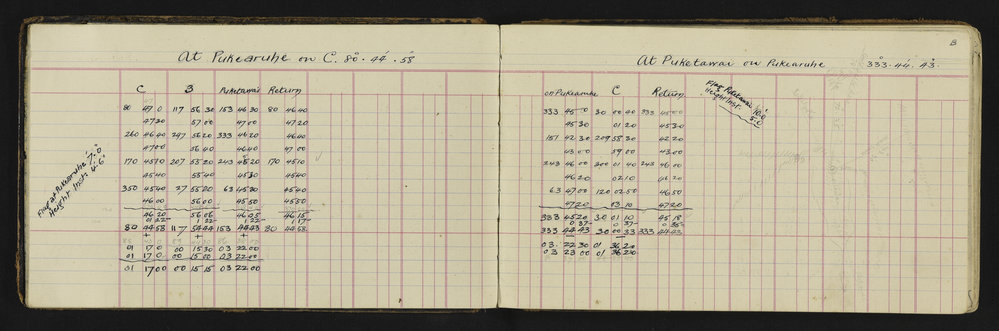 At Pukearuhe on C. 80°. 44'. 58"
C 3 Puketawai Return
80 47 0 117 56 30 153 46 30 80 46 40
47 30 57 00 47 00 47 20
260 46 40 297 56 20 333 46 20 46 40
47 00 56 40 46 40 47 00
45 40 55 40 45 30 45 40
350 45 40 27 55 30 63 45 30 45 40
46 00 56 00 45 50 45 50
46 20 56 06 46 05 46 15
80 44 58 117 54 44 153 44 43 80 44 58
01 17 0 00 15 30 03 22 00
01 17 0 00 15 00 03 22 00
01 17 00 00 15 15 03 22 00
Flag at Pukearuhe 7'. 0"
Height Inst. 4'. 6"
B
At Puketawai on Pukearuhe 333°. 44'. 43"
on Pukearuhe C Return
Flag Puketawai 10.0
Height Inst. 5.0
333 45 0 30 00 40 333 45 00
45 30 01 20 45 30
42 30 209 58 30 42 20
43 00 59 00 43 00
243 46 00 300 01 40 243 46 00
46 20 02 10 46 20
63 47 00 120 02 50 46 50
47 20 03 10 47 20
333 45 20 30 01 10 45 18
0 37 0 37 0 35
333 44 43 30 00 33 333 44 43
03 22 30 01 36 20
03 23 00 01 36 20